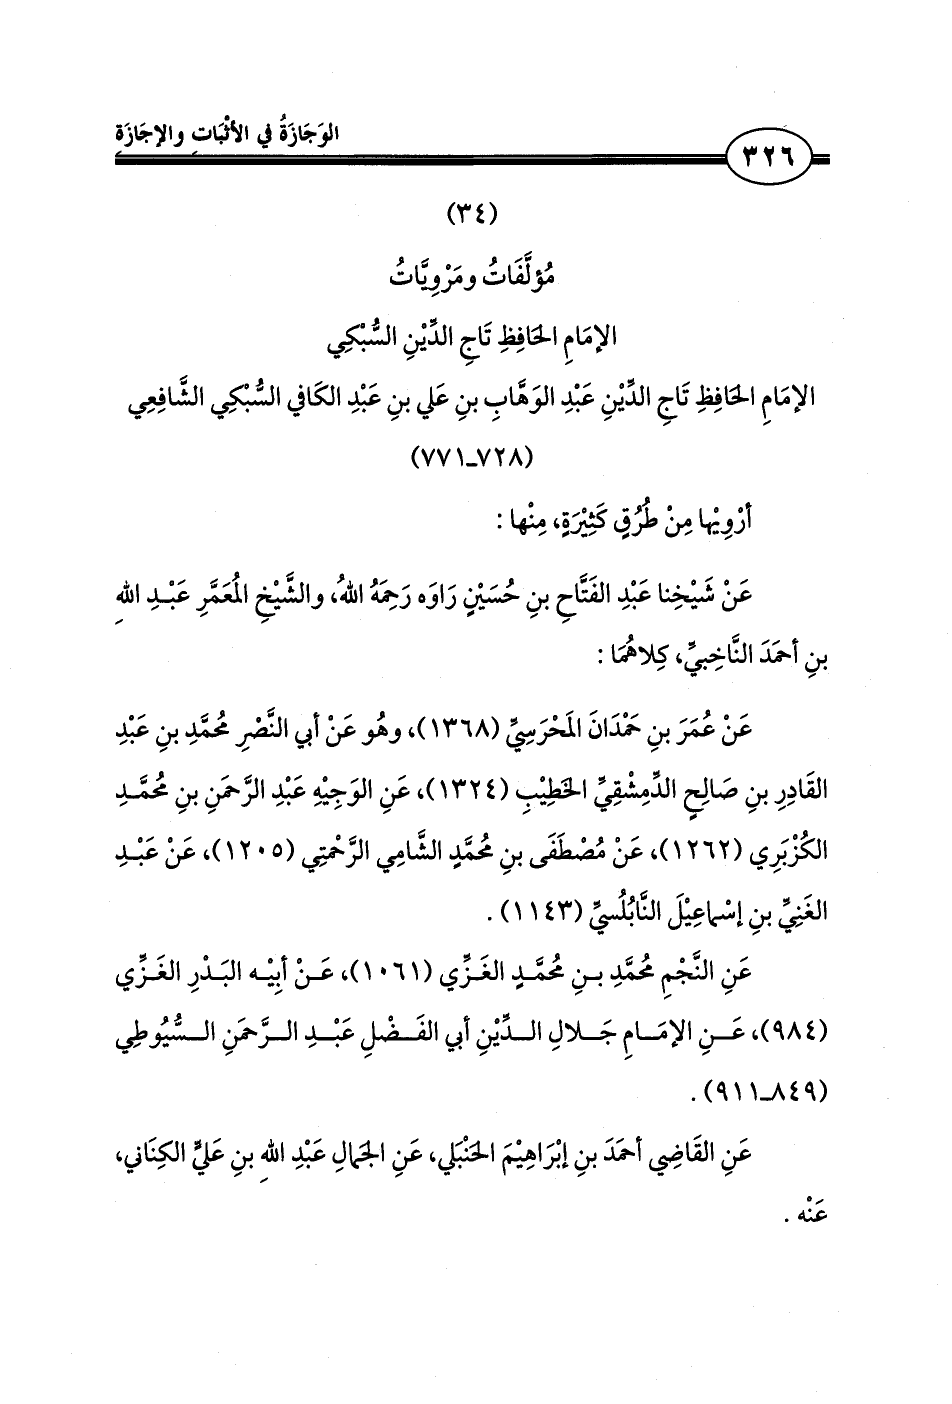 الوَجَازَةُ في الأثْبَاتِ والإجَازَةِ
٣٢٦
(٣٤)
مُؤلَّفَاتُ ومَرْوِيَّاتُ
الإمَامِ الحَافِظِ تَاجِ الدِّيْنِ السُّبْكِي
الإمَامِ الحَافِظِ تَاجِ الدِّيْنِ عَبْدِ الوَهَّابِ بنِ عَلي بنِ عَبْدِ الكَافي السُّبْكِي الشَّافِعِي
(٧٢٨ـ٧٧١)
أرْوِيْها مِنْ طُرُقٍ كَثِيْرَةٍ، مِنْها :
عَنْ شَيْخِنا عَبْدِ الفَتَّاحِ بنِ حُسَيْنٍ رَاوَه رَحِمَهُ اللهُ، والشَّيْخِ المُعَمَّرِ عَبْـدِ اللهِ
بنِ أحمَدَ النَّاخِبيِّ، كِلاهُمَا :
عَنْ عُمَرَ بنِ حَمْدَانَ المَحْرَسِيِّ (١٣٦٨)، وهُو عَنْ أبي النَّصْرِ مُحمَّدِ بنِ عَبْدِ
القَادِرِ بنِ صَالِحٍ الدِّمِشْقِيِّ الخَطِيْبِ (١٣٢٤)، عَنِ الوَجِيْهِ عَبْدِ الرَّحمَنِ بنِ مُحمَّـدٍ
الكُزْبَرِي (١٢٦٢)، عَنْ مُصْطَفَى بنِ مُحمَّدٍ الشَّامِي الرَّحْمتِي (١٢٠٥)، عَنْ عَبْـدِ
الغَنِيِّ بنِ إسْماعِيْلَ النَّابُلْسيِّ (١١٤٣) .
عَنِ النَّجْمِ مُحمَّدِ بـنِ مُحمَّـدٍ الغَـزِّي (١٠٦١)، عَـنْ أبِيْـه البَـدْرِ الغَـزِّي
(٩٨٤)، عَـنِ الإمَـامِ جَـلالِ الـدِّيْنِ أبي الفَـضْلِ عَبْـدِ الـرَّحمَنِ الـسُّيُوطِي
(٨٤٩ـ٩١١) .
عَنِ القَاضِي أحمَدَ بنِ إبْرَاهِيْمَ الحَنْبَلي، عَنِ الجَمالِ عَبْدِ اللهِ بنِ عَليٍّ الكِنَاني،
عَنْه .